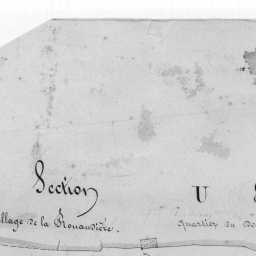 Section U
illage de la Rouaudière.
quartier du